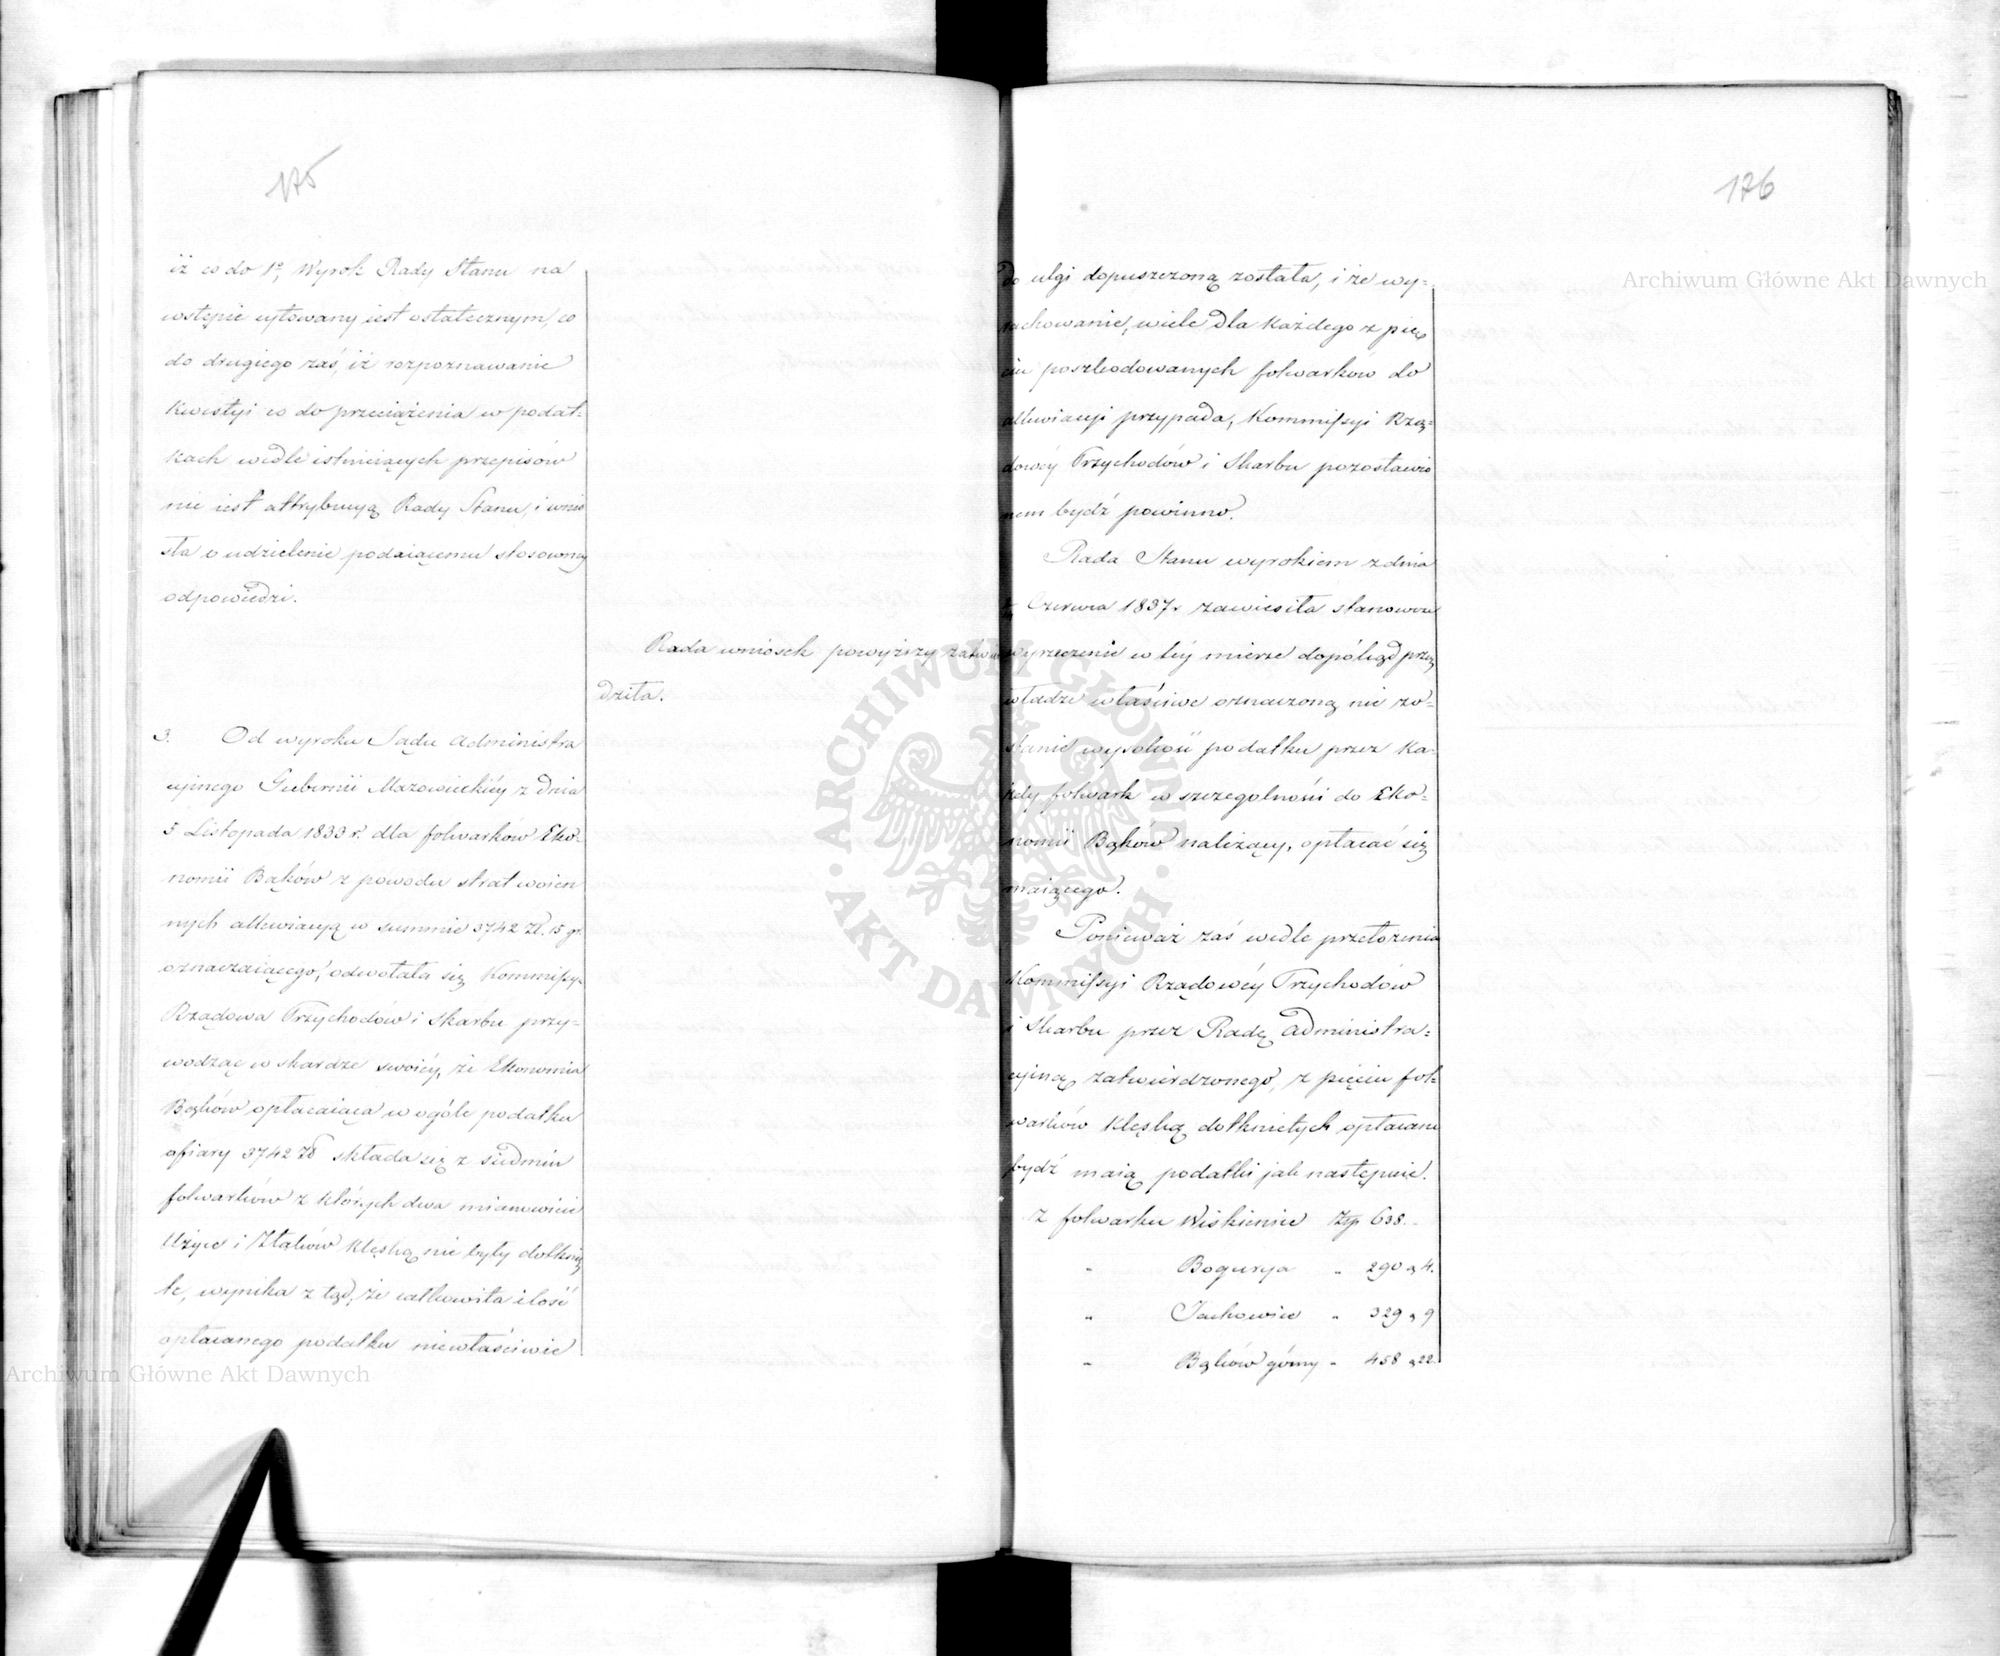 175
iż co do 1º, Wyrok Rady Stanu na
wstępie cytowany iest ostatecznym, co
do drugiego zaś, iż rozpoznawanie
kwestyi co do przeciążenia w podat-
kach wedle istnieiących przepisów
nie iest attrybucyą Rady Stanu, i wnio
sła o udzielenie podaiącemu stosowney
odpowiedzi.
Rada wniosek powyższy zatwier
dziła.
3. Od wyroku Sądu Administra
cyjnego Gubernii Mazowieckiéy z dnia
5 Listopada 1833 r. dla folwarków Eko-
nomii Bąków z powodu strat woien
nych allewiacyą w summie 3742 Zł. 15 gr.
oznaczaiącego, odwołała się Kommissya
Rządowa Przychodów i Skarbu przy-
wodząc w skardze swoiéy, że Ekonomia
Bąków opłacaiąca w ogóle podatku
ofiary 3742 Zł składa się z siedmiu
folwarków z których dwa mianowicie
Urzyce i Złaków klęską nie były dotknię
te, wynika z tąd, że całkowita ilość
opłacanego podatku niewłaściwie
126
do ulgi dopuszczoną została, i że wy-
rachowanie, wiele dla każdego z pię
ciu poszkodowanych folwarków do
allewiacyi przypada, Kommissyi Rzą-
dowéy Przychodów i Skarbu pozostawio
nem bydź powinno.
Rada Stanu wyrokiem z dnia
Czerwca 1837 r. zawiesiła stanowcze
wyrzeczenie w téy mierze dopókąd przez
władze właściwe oznaczoną nie zo-
stanie wysokość podatku przez ka-
żdy folwark w szczególności do Eko-
nomii Bąków należący, opłacać się
maiącego.
Ponieważ zaś wedle przełożenia
Kommissyi Rządowéy Przychodów
i Skarbu przez Radę Administra-
cyiną zatwierdzonego, z pięciu fol-
warków klęską dotkniętych opłacane
bydź maią podatki jak następuie.
z folwarku Wiskienice Złp 638. -
" Bogurya " 290 " 4.
" Jackowice " 329 " 9
" Bąków górny " 458 " 22.
Archiwum Główne Akt Dawnych
Archiwum Główne Akt Dawnych
· ARCHIWUM GŁÓWNE · AKT DAWNYCH